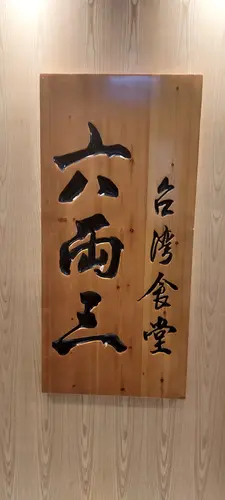 台灣食堂
六兩三